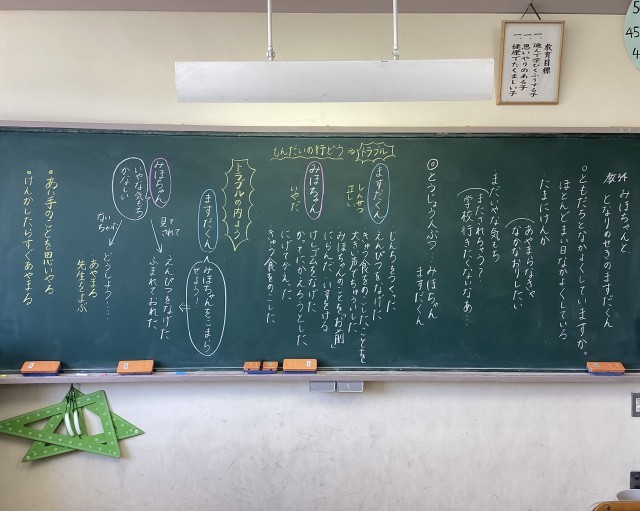 教育目標
一、進んで学びくふうする子
一、思いやりのある子
一、健康でたくましい子
みほちゃんと
となりのせきのますだくん
○ともだちとなかよくしていますか。
ほとんどまい日なかよくしている
たまにけんか
あやまらなきゃ
なかなおりしたい
まだいやな気もち
またされるかな?
学校行きたくないなあ…
◎とうじょう人ぶつ…みほちゃん
ますだくん
もんだいの行どう⇒トラブル
ますだくん
しんせつ
正しい
えんぴつをなげた
きゅう食をのこしたことを
大きい声でちゅういした
みほちゃんのことを「お前」
にらんだ、いすをける
けしゴムをなげた
みほちゃん
いやだ
かってにかえろうとした
にげてかえった
きゅう食をのこした
トラブルの内よう
ますだくん
みほちゃんをこまらせよう
えんぴつをなげた
ふまれておれた
みほちゃん
いやな気もち
かなしい
どうしよう…
あやまる
先生をよぶ
・あい手のことを思いやる
・けんかしたらすぐあやまる
5
45
4